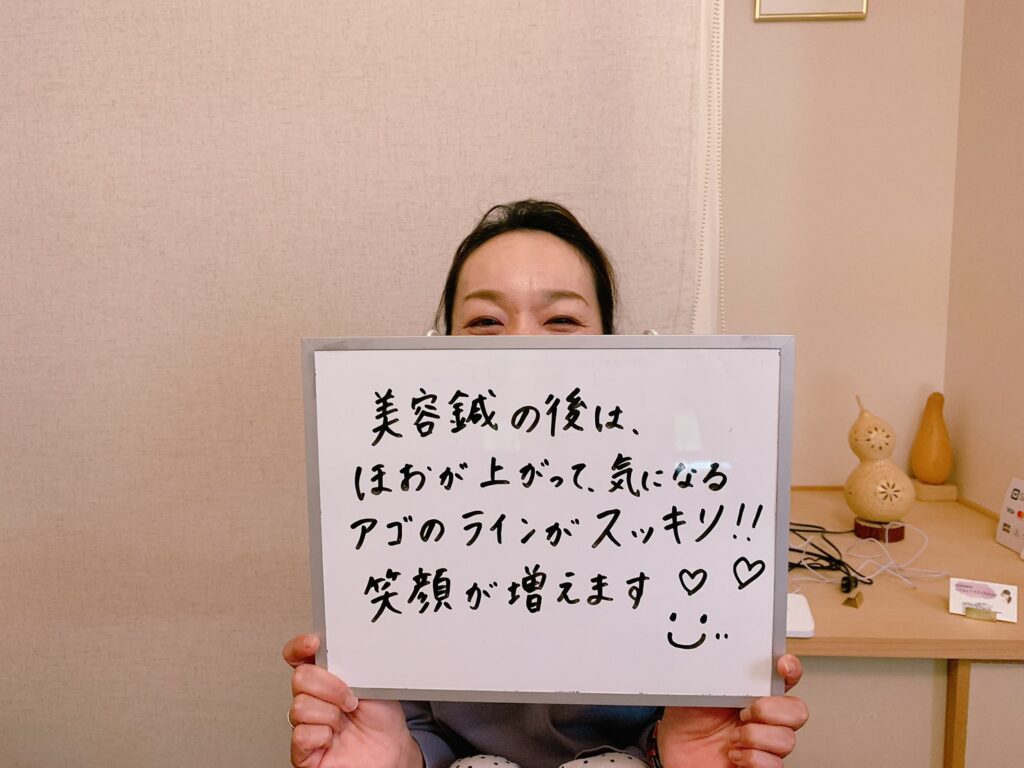 美容鍼の後は、
ほおが上がって、気になる
アゴのラインがスッキリ!!
笑顔が増えます♡♡